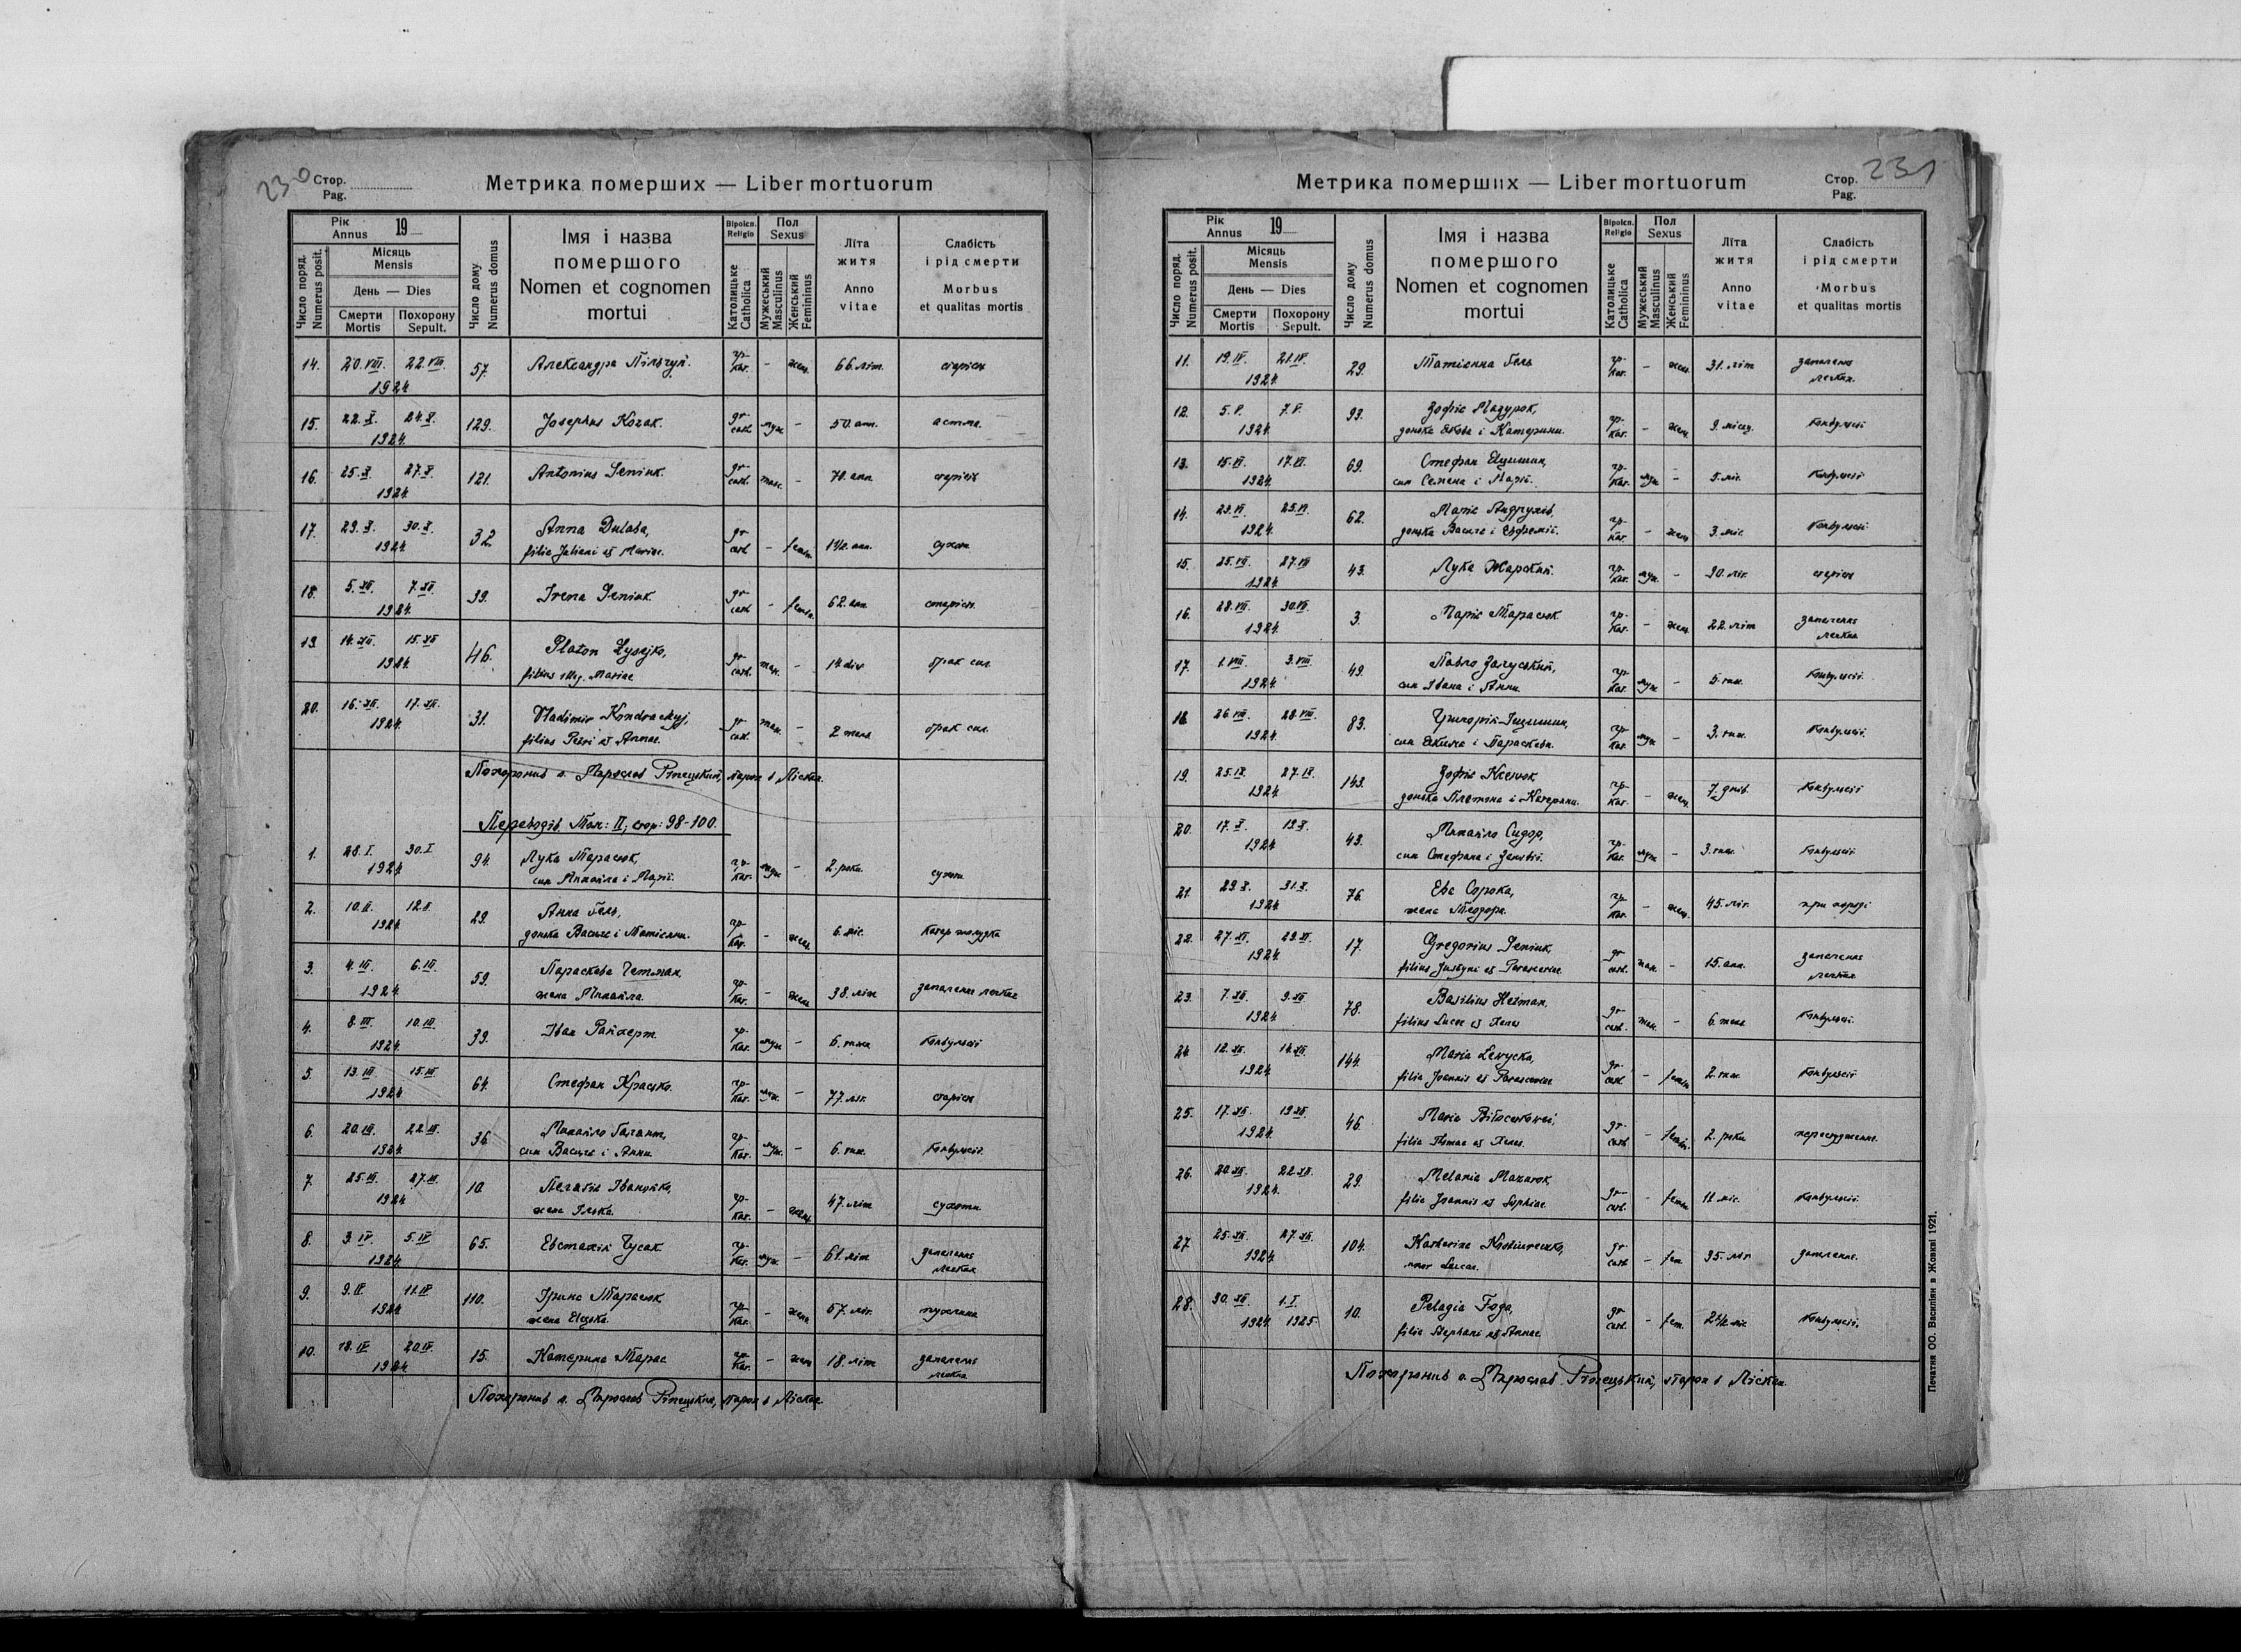 230
Стор.
Pag.
Метрика померших — Liber mortuorum
Рік
Annus 19
Число поряд.
Numerus posit.
Місяць
Mensis
День — Dies
Смерти
Mortis
Похорону
Sepult.
Число дому
Numerus domus
Імя і назва
померш​ого
Nomen et cognomen
mortui
Віроісп.
Religio
Католицьке
Catholica
Пол
Sexus
Мужеський
Masculinus
Женський
Femininus
Літа
житя
Anno
vitae
Слабість
і рід смерти
Morbus
et qualitas mortis
14. 20.VIII. 22.VIII. 1924 57. Александра гр-кат. — жен. 66. літ. старість
15. 22.X. 24.X. 1924. 129. Josephus Kozak. gr-cath. муж. — 50. ann. астма.
16. 25.X. 27.X. 1924. 121. Antonius Seniuk. gr-cath. masc. — 70. ann. старість
17. 29.X. 30.X. 1924. 32. Anna Dulaba, gr-cath. — femin. 1 1/2. ann. сухоти.
filia Juliani et Mariae.
18. 5.XII. 7.XII. 1924. 39. Irena Seniuk. gr-cath. — femin. 62. ann. старість.
19 14.XII. 15.XII 1924. 46. Platon Łysejko, gr-cath. mas. — 14 dni брак сил.
filius illeg. Mariae
20. 16.XII. 17.XII. 1924. 31. Vladimir Kondrackyj, gr-cath. mas. — брак сил.
filius Petri et Annae.
Похоронив о. Мирослав Ріпецький, парох в Лісках.
Переводів. Том: II, стор: 98-100.
1. 28.I. 30.I 1924. 94. Лука Тарасюк, гр-кат. муж — 2. роки. сухоти.
син Михайла і Марії.
2. 10.II. 12.II. 1924. 29. Анна Гель, гр-кат. — жен. 6. міс. катар жолудка
донька Василя і Матієнни.
3. 4.III. 6.III. 1924. 59. Параскева Гетман, гр-кат. — жен. 38. літ запаленнє легких
жена Михайла.
4. 8.III. 10.III. 1924. 39. Іван Райхерт гр-кат. муж — 6. тиж. конвульсії
5. 13.III 15.III 1924 64. Стефан гр-кат. муж. — 77. літ. старість
6. 20.III. 22.III. 1924. 36. Михайло Галант, гр-кат. муж. — 6. тиж. конвульсії.
син Василя і Анни.
7. 25.III. 27.III. 1924. 10. Пелагія гр-кат. — жен. 47. літ сухоти
жена Ілька.
8. 3.IV. 5.IV 1924. 65. Евстахій Гусак гр-кат. муж. — 61. літ запаленнє
легких
9. 9.IV. 11.IV 1924. 110. Ірина Тарасюк гр-кат. — жен. 57. літ. пухлина
жена Яцька.
10. 18.IV 20.IV. 1924 15. Катерина Тарас гр-кат. — жен 18. літ запаленнє
легких
Похоронив о. Мирослав Ріпецький, парох в Лісках.
Метрика померших — Liber mortuorum
Стор.
Pag.
231
Рік
Annus 19
Число поряд.
Numerus posit.
Місяць
Mensis
День — Dies
Смерти
Mortis
Похорону
Sepult.
Число дому
Numerus domus
Імя і назва
помершого
Nomen et cognomen
mortui
Віроісп.
Religio
Католицьке
Catholica
Пол
Sexus
Мужеський
Masculinus
Женський
Femininus
Літа
житя
Anno
vitae
Слабість
і рід смерти
Morbus
et qualitas mortis
11. 19.IV. 21.IV. 1924. 29. Матієнна Гель гр-кат. — жен. 31. літ запаленнє
легких.
12. 5.V. 7.V. 1924. 93. Зофія Мазурок, гр-кат. — жен. 9. місяц. конвульсії
донька Якова і Катерини.
13. 15.VI. 17.VI. 1924. 69. Стефан Яцишин, гр-кат. муж — 5. міс. конвульсії
син Семена і Марії.
14. 1924. 62. Марія Андрухів, гр-кат. — жен 3. міс. конвульсії
донька Василя і Евфемії.
15. 25.VII. 27.VII 1924 43. Лука Жарский. гр-кат. муж. — 90. літ. старість
16. 28.VII. 30.VII. 1924. 3. Марія Тарасюк гр-кат. — жен. 22. літ запаленнє
легких
17. 1.VIII. 3.VIII. 1924. 49. Павло Залуський, гр-кат. муж — 5. тиж. конвульсії.
син Івана і Анни.
18. 26.VIII. 28.VIII. 1924. 83. Григорій Яцишин, гр-кат. муж — 3. тиж. конвульсії.
син Якима і Параскеви.
19. 25.IX. 27.IX. 1924. 143. Зофія гр-кат. — жен. 7. днів. конвульсії
донька Платона і Катерини.
20. 17.X. 19.X. 1924 43. Михайло Сидор, гр-кат. муж — 3. тиж. конвульсії
син Стефана і Зеновії.
21. 29.X. 31.X. 1924. 76. Ева Сорока, гр-кат. — жен. 45. літ. при породі
жена Теодора.
22. 27.XI. 29.XI. 1924 17. Gregorius Seniuk, gr-cath. mas. — 15. ann. запаленнє
filius Justyni et Parasceviae легких
23. 7.XII. 9.XII. 1924 78. Basilius Hetman. gr-cath. mas. — 6. конвульсії.
filius Lucae et Xenes
24 12.XII. 14.XII. 1924. 144. Maria Levycka, gr-cath. — femin 2. тиж. конвульсії
filia Joannis et Parasceviae
25. 17.XII. 19.XII. 1924. 46. Maria gr-cath — femin. 2. роки
filia Thomae et Xenes.
26. 20.XII. 22.XII. 1924. 29. Melania Mazurok, gr-cath. — femin 11. міс. конвульсії.
filia Joannis et Sophiae.
27. 25.XII. 27.XII. 1924 104. Katharina gr-cath — fem. 35. літ запаленнє.
uxor Lucae.
28. 30.XII. 1924. 1.I. 1925 10. Pelagia Foga, gr-cath. — fem. 2 1/2 міс конвульсії.
filia Stephani et Annae.
Похоронив о. Мирослав Ріпецький, парох в Лісках.
Печатня ОО. Василіян в Жовкві 1921.